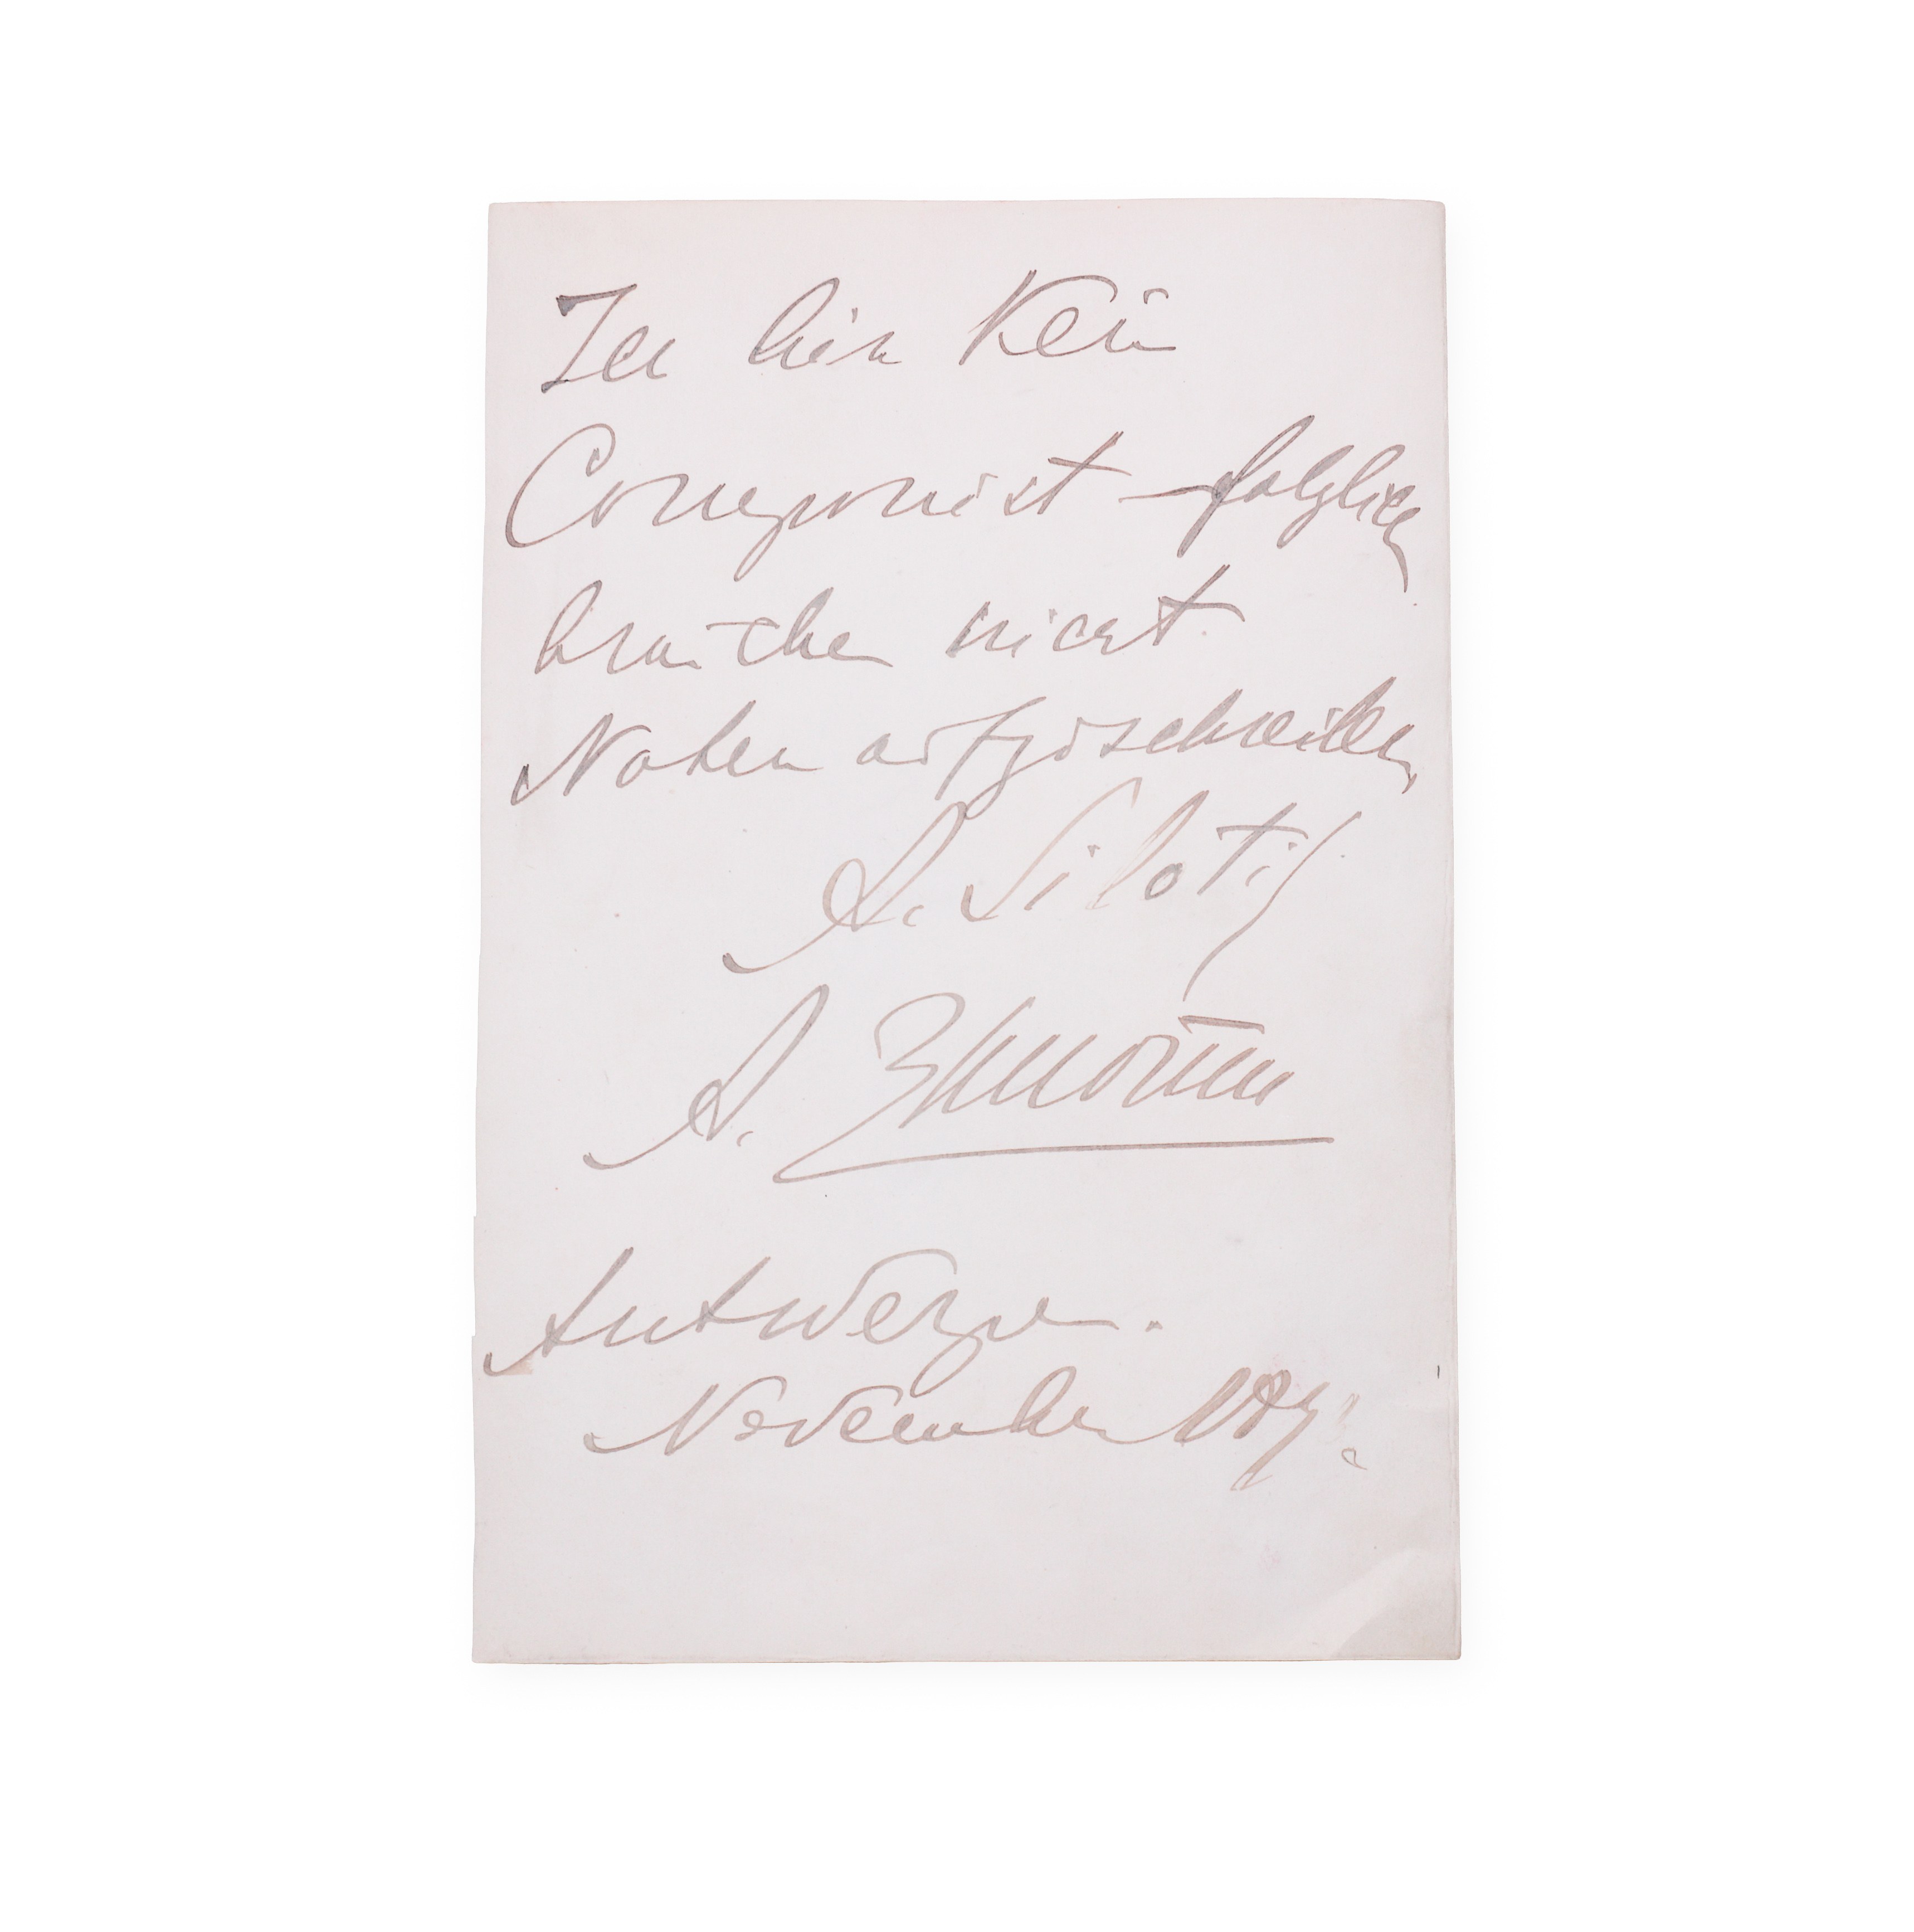 Ich bin Kein
Componist – folglich
brauche nicht
Noten aufzuschreiben
A. Siloti
А. Зилоти
Antwerpen.
November